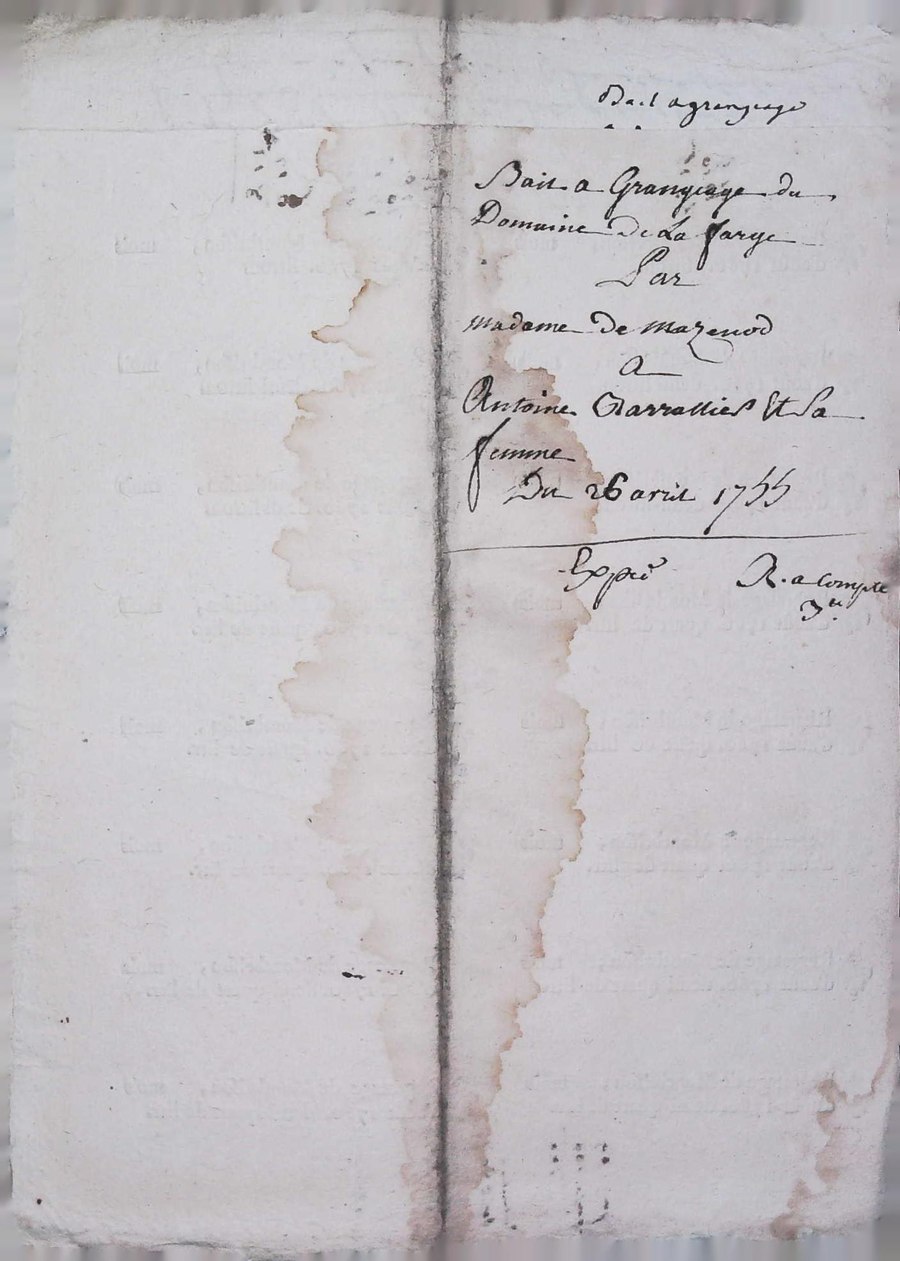 Bail a grangeage
Bail a Grangeage du
Domaine De La farge
Par
Madame De Mazenod
A
Antoine Et Sa
femme
Du 26 avril 1755
Exppié R. a Compte
3